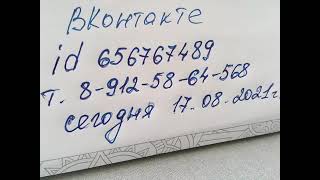 ВКонтакте
id 656767489
т. 8-912-58-64-568
сегодня 17.08.2021г